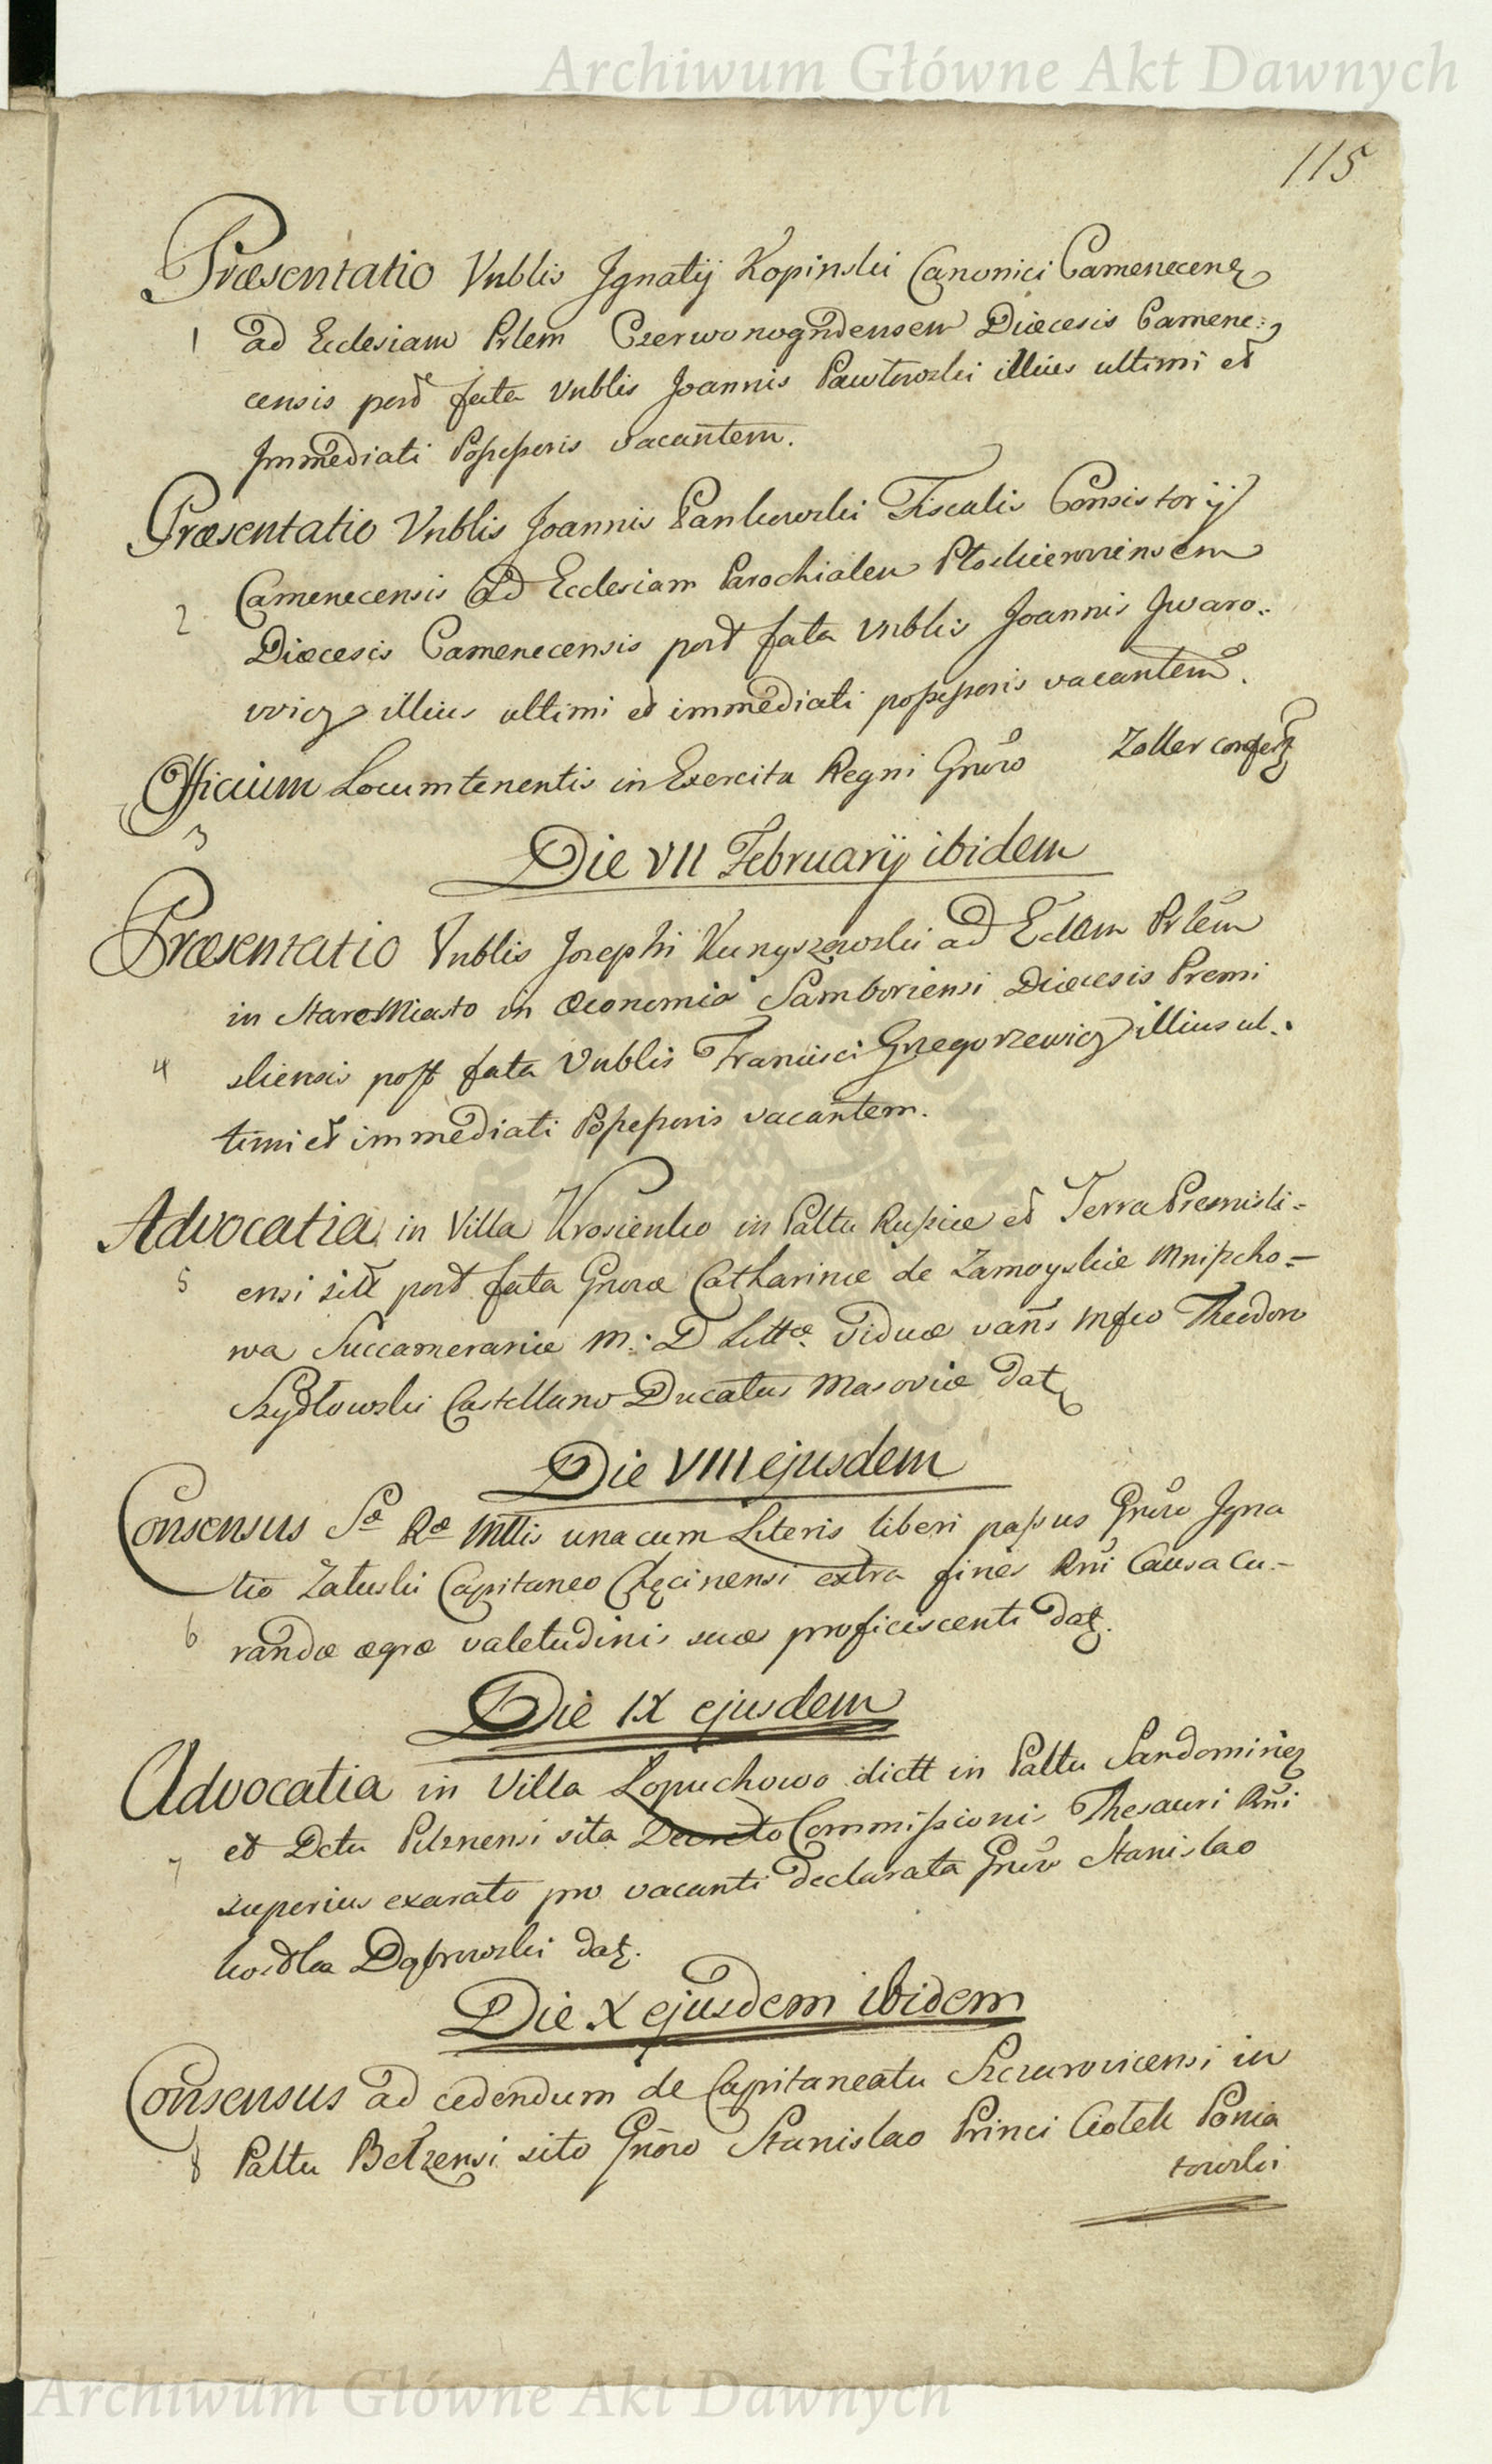 Archiwum Główne Akt Dawnych
115
Præsentatio Vnblis Jgnatij Kopinski Canonici Camenecen
1 ad Ecclesiam Prlem Czerwonogndensem Diœcesis Camene:
censis post fata Vnblis Joannis Pawłowski illius ultimi et
Jmmediati Possessoris vacantem.
Præsentatio Vnblis Joannis Pankowski Fiscalis Consistorij
Camenecensis ad Ecclesiam Parochialem Płoskieroviensem
2 Diœcesis Camenecensis post fata Vnblis Joannis Jwaro:
wicz illius ultimi et immediati possessoris vacantem.
Officium Locumtenentis in Exercitu Regni Gnrõso Zoller
3
Die VII Februarij ibidem
Præsentatio Vnblis Josephi Kunyszewski ad Eclam Prlem
in Stare Miasto in Œconomia Samboriensi Diœcesis Premi
4 sliensis post fata Vnblis Francisci Grzegorzewicz illius ul:
timi et immediati Possessoris vacantem.
Advocatia in Villa Krosienko in Palttu Russiæ et Terra Premisli-
5 ensi sitt post fata Gnrosæ Catharinæ de Zamoyskie Mniszcho-
wa Succamerariæ M: D Littæ Viduæ vans Mfco Theodoro
Szydłowski Castellano Ducatus Masoviæ dat
Die VIII ejusdem
Consensus Sæ Ræ Mttis una cum Literis liberi passus Gnrõso Jgna
tio Załuski Capitaneo Chęcinensi extra fines Rni Causa Cu-
6 randæ ægræ valetudinis suæ proficiscenti dat.
Die IX ejusdem
Advocatia in Villa Lopuchowo dictt in Palttu Sandomirien
7 et Dctu Pilznensi sita Decreto Commissionis Thesauri Rni
superius exarato pro vacanti declarata Gnrõso Stanislao
Dąbrowski dat.
Die X ejusdem ibidem
Consensus ad cedendum de Capitaneatu Szczurovicensi in
8 Palttu Bełzensi sito Gnrõso Stanislao Princi Ciołek Ponia
towski
Archiwum Główne Akt Dawnych